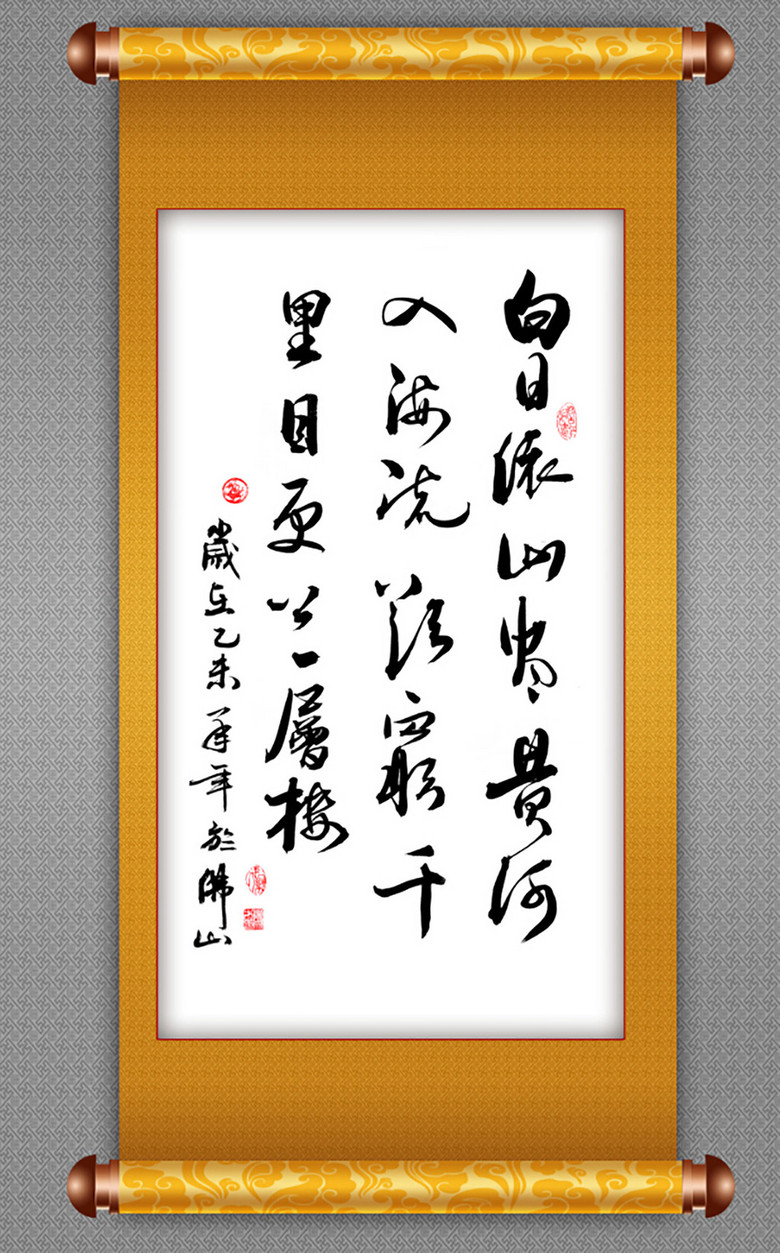 白日依山盡黄河
入海流欲窮千
里目更上一層樓
歲在乙未羊年於佛山